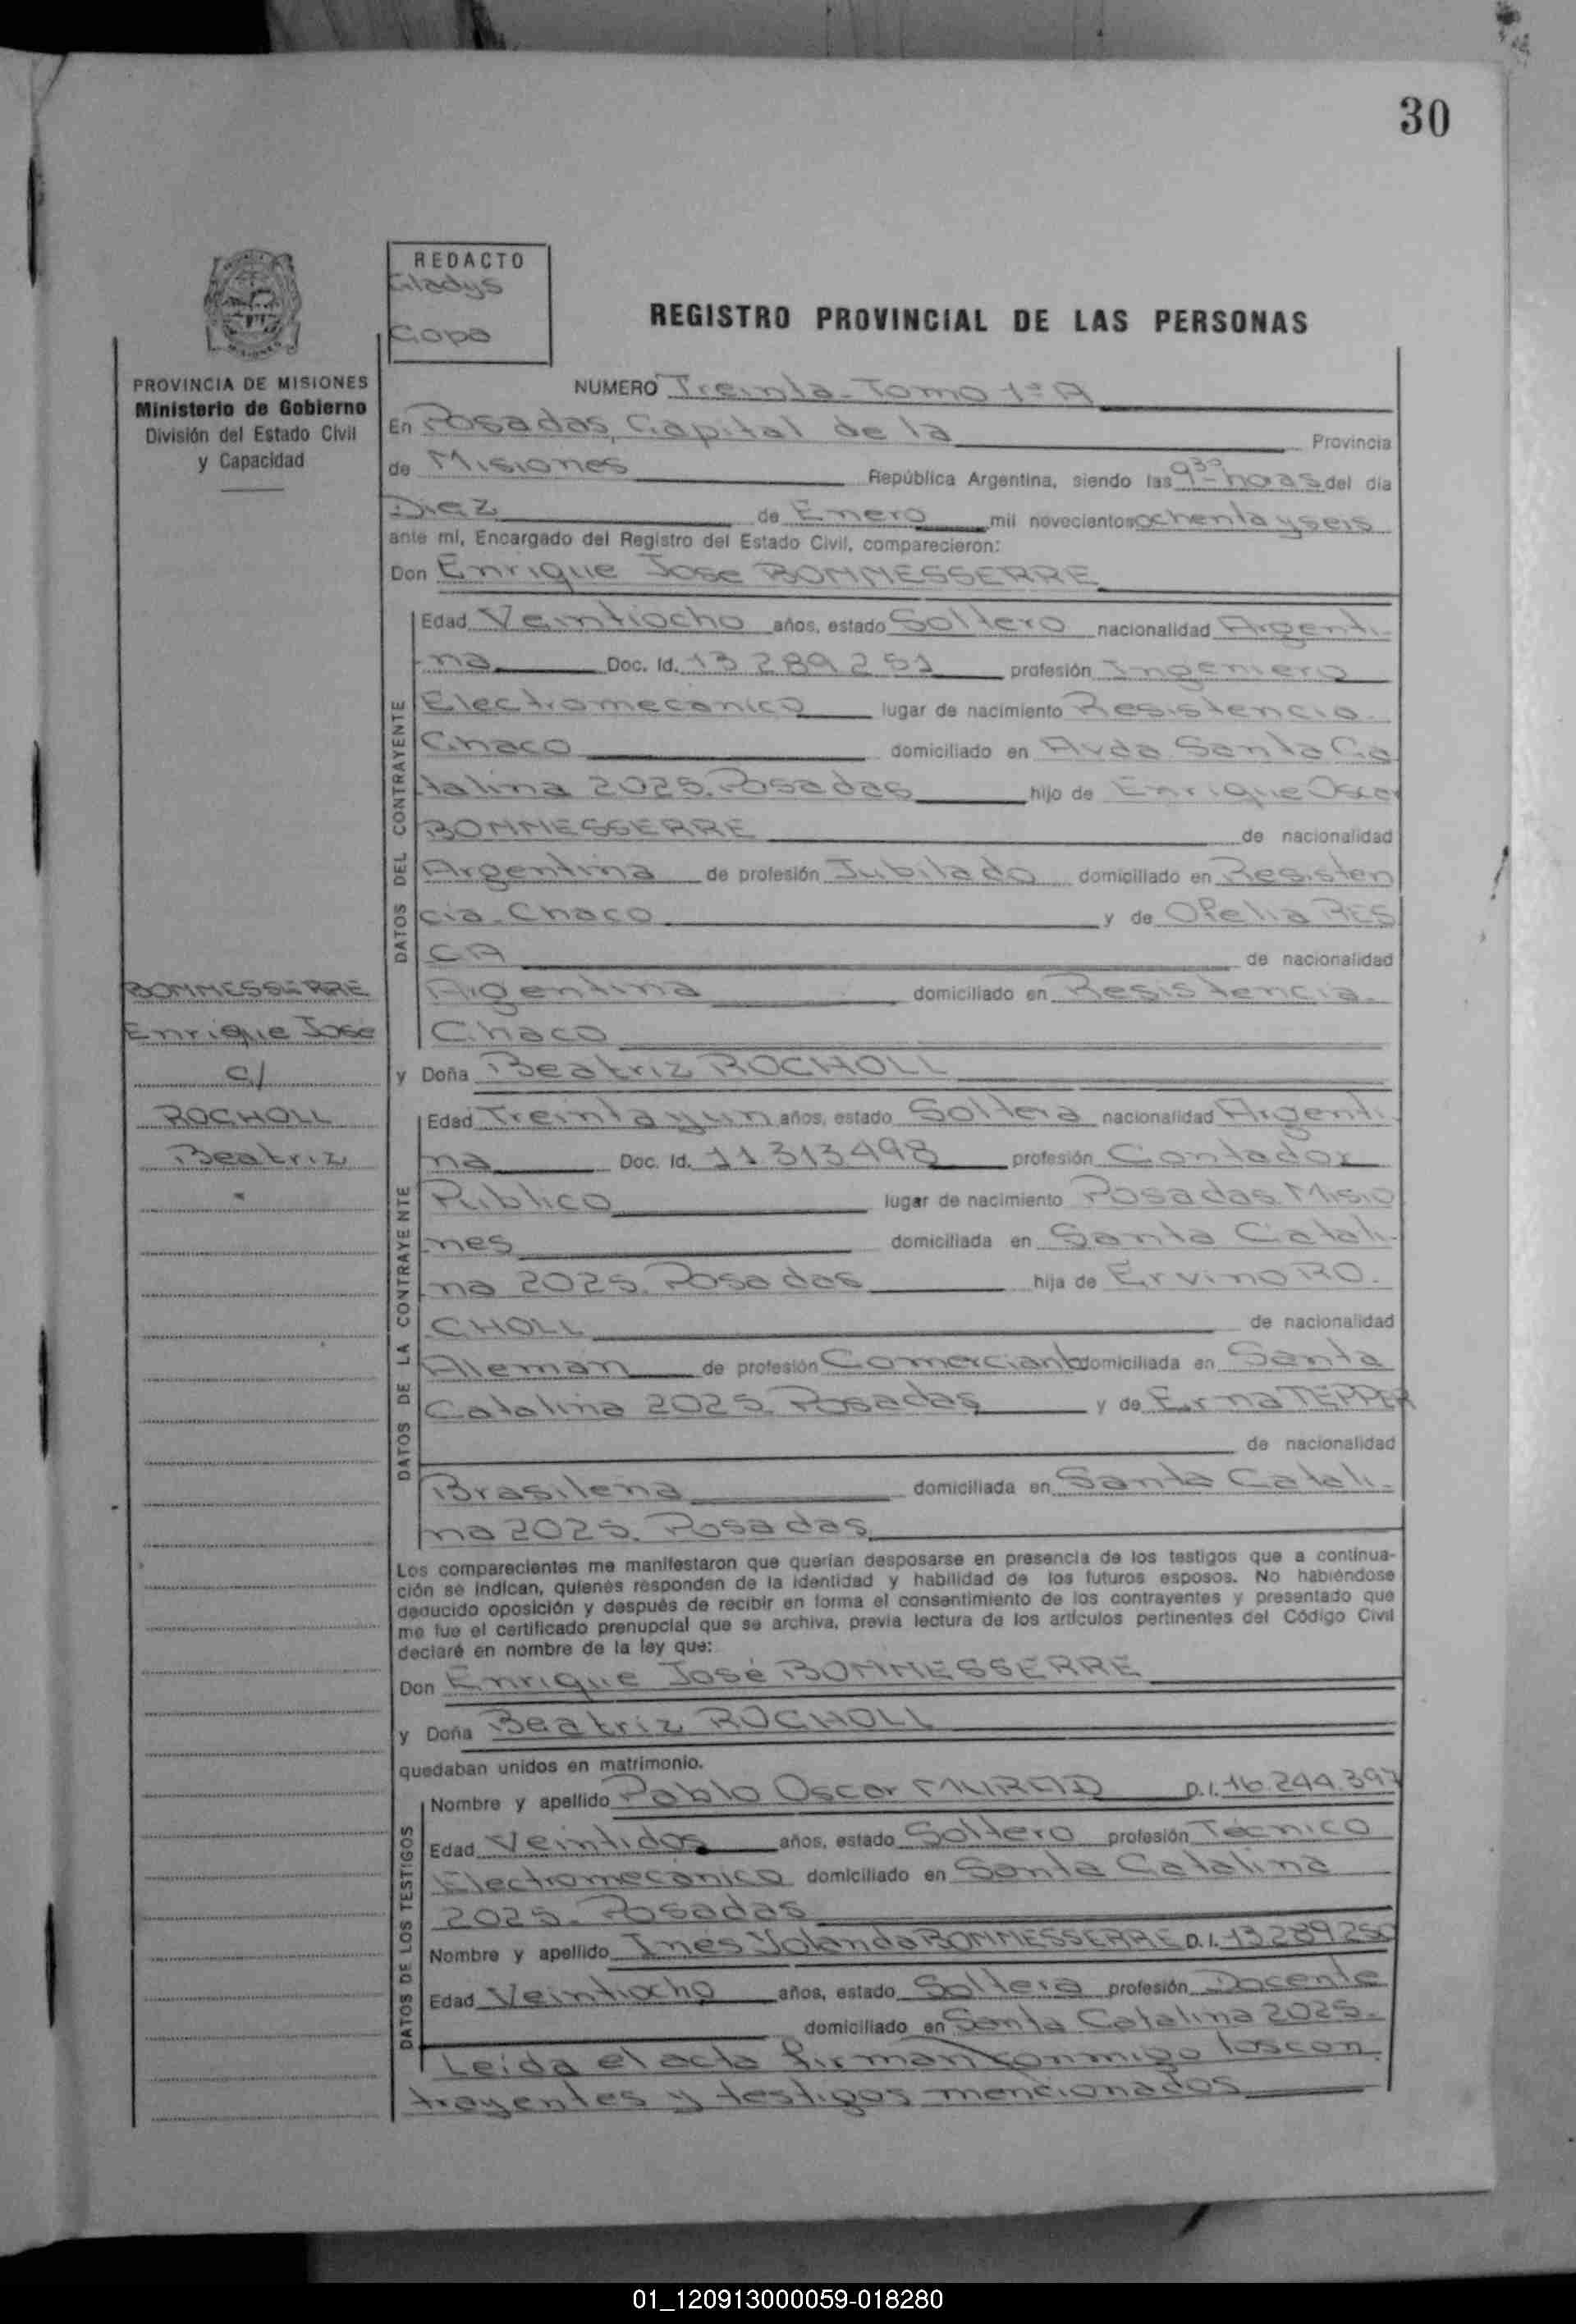 30
REDACTO
Gladys
Gopa
REGISTRO PROVINCIAL DE LAS PERSONAS
PROVINCIA DE MISIONES
Ministerio de Gobierno
División del Estado Civil
y Capacidad
NUMERO Treinta - Tomo 1º A
En Posadas, Capital de la Provincia
de Misiones República Argentina, siendo las 9 30 horas del día
Diez de Enero mil novecientos ochenta y seis
ante mí, Encargado del Registro del Estado Civil, comparecieron:
Don Enrique Jose BOMMESSERRE
DATOS DEL CONTRAYENTE
Edad Veintiocho años, estado Soltero nacionalidad Argenti-
na Doc. Id. 13 289 251 profesión Ingeniero
Electromecanico lugar de nacimiento Resistencia.
Chaco domiciliado en Avda Santa Ca
talina 2025. Posadas hijo de Enrique Oscar
BOMMESSERRE de nacionalidad
Argentina de profesión Jubilado domiciliado en Resisten
cia - Chaco y de Ofelia RES
CA de nacionalidad
Argentina domiciliado en Resistencia.
Chaco
BOMMESSERRE
Enrique José
c/
ROCHOLL
Beatriz
y Doña Beatriz ROCHOLL
DATOS DE LA CONTRAYENTE
Edad Treinta y un años, estado Soltera nacionalidad Argenti-
na Doc. Id. 11 313498 profesión Contador
Publico lugar de nacimiento Posadas Misio
nes domiciliada en Santa Catali-
na 2025. Posadas hija de Ervino RO.
CHOLL de nacionalidad
Aleman de profesión Comerciante domiciliada en Santa
Catalina 2025. Posadas y de Erma TEPPER
de nacionalidad
Brasilena domiciliada en Santa Catali-
na 2025. Posadas
Los comparecientes me manifestaron que querían desposarse en presencia de los testigos que a continua-
ción se indican, quienes responden de la identidad y habilidad de los futuros esposos. No habiéndose
deducido oposición y después de recibir en forma el consentimiento de los contrayentes y presentado que
me fue el certificado prenupcial que se archiva, previa lectura de los artículos pertinentes del Código Civil
declaré en nombre de la ley que:
Don Enrique José BOMMESSERRE
y Doña Beatriz ROCHOLL
quedaban unidos en matrimonio.
DATOS DE LOS TESTIGOS
Nombre y apellido Pablo Oscar MURAD D.I. 16.244.397
Edad Veintidos años, estado Soltero profesión Técnico
Electromecánico domiciliado en Santa Catalina
2025. Posadas
Nombre y apellido Ines Yolanda BOMMESSERRE D.I. 13289250
Edad Veintiocho años, estado Soltera profesión Docente
domiciliado en Santa Catalina 2025.
Leida el acta firman conmigo los con
trayentes y testigos mencionados
01_120913000059-018280